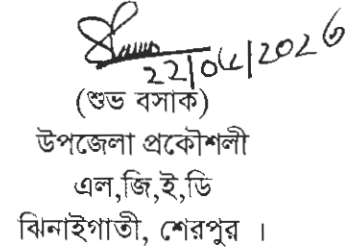 22/04/2026
(শুভ বসাক)
উপজেলা প্রকৌশলী
এল,জি,ই,ডি
ঝিনাইগাতী, শেরপুর ।